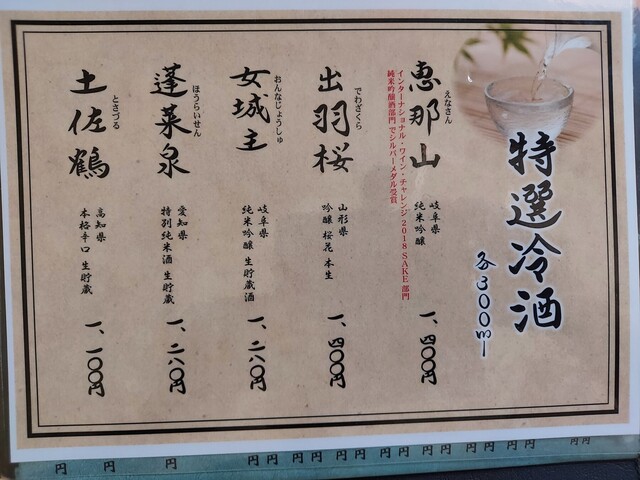 特選冷酒
各300ml
恵那山
えなさん
インターナショナル・ワイン・チャレンジ2018 SAKE部門
純米吟醸酒部門でシルバーメダル受賞
岐阜県
純米吟醸
一、四〇〇円
出羽桜
でわざくら
山形県
吟醸 桜花 本生
一、四〇〇円
女城主
おんなじょうしゅ
岐阜県
純米吟醸 生貯蔵酒
一、二八〇円
蓬莱泉
ほうらいせん
愛知県
特別純米酒 生貯蔵
一、二八〇円
土佐鶴
とさづる
高知県
本格辛口 生貯蔵
一、一〇〇円
円 円 円 円 円 円 円 円 円 円 円 円 円 円 円 円 円 円